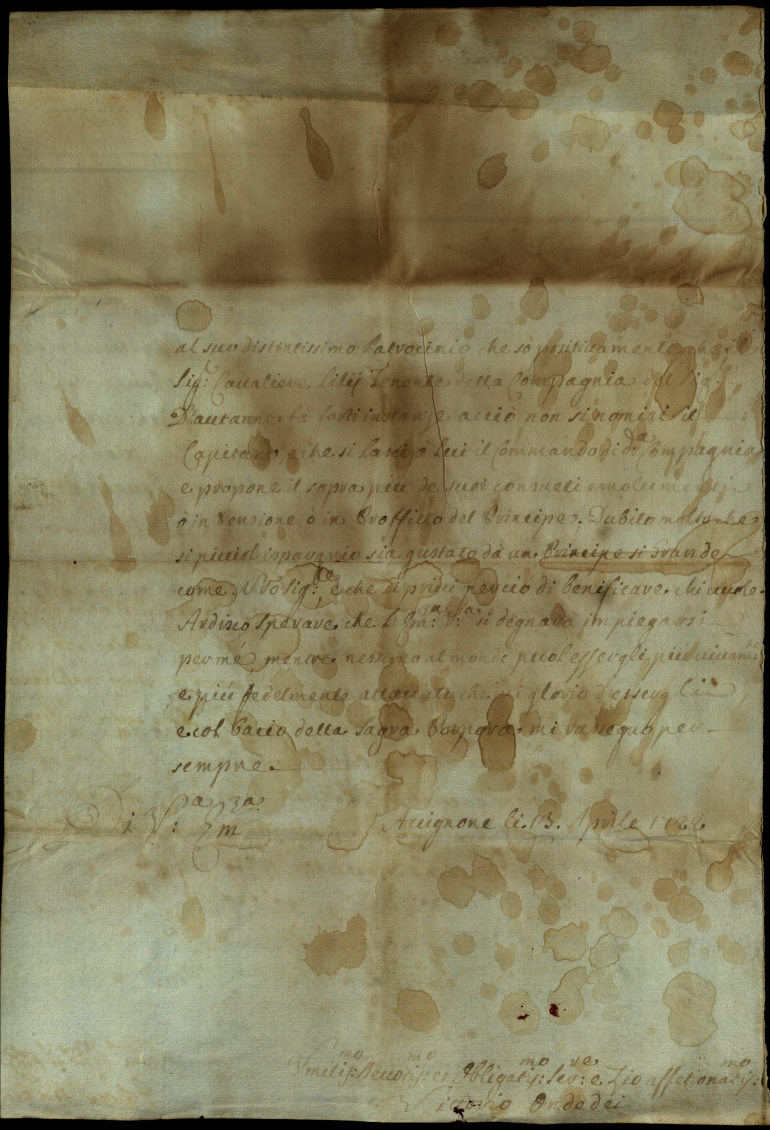 al suo distintissimo Patrocinio che sò positivamente che il
Sig:r Cavaliere Lilij Tenente della Compagnia del Sig:r
D'autanne fà forti instanze acciò non si nomini il
Capitano e che si lasci à Lui il Commando di d:a Compagnia
e propone il sopra più de suoi consueti emolumenti
ò in Pensione ò in Proffitto del Principe. Dubito molto che
si picciol isparagnio sia gustato da un Principe si Grande
come N:ro Sig:re, e che si privi perciò di benificare chi vuole.
Ardisco Sperare che L'Em:za V:ra si degnarà impiegarsi
per mé mentre nessuno al mondo puol essergli più vivam:te
e più fedelmente attaccato che mi glorio d'essergli
e col bacio della Sagra Porpora mi rassegno per
sempre.
Di V:ra Em:za
Avignone li 13. Aprile 1722
Umiliss:mo Devotiss:mo et Obligatiss:mo Ser:re e Zio affetionatiss:mo
Vittorio Ondedei